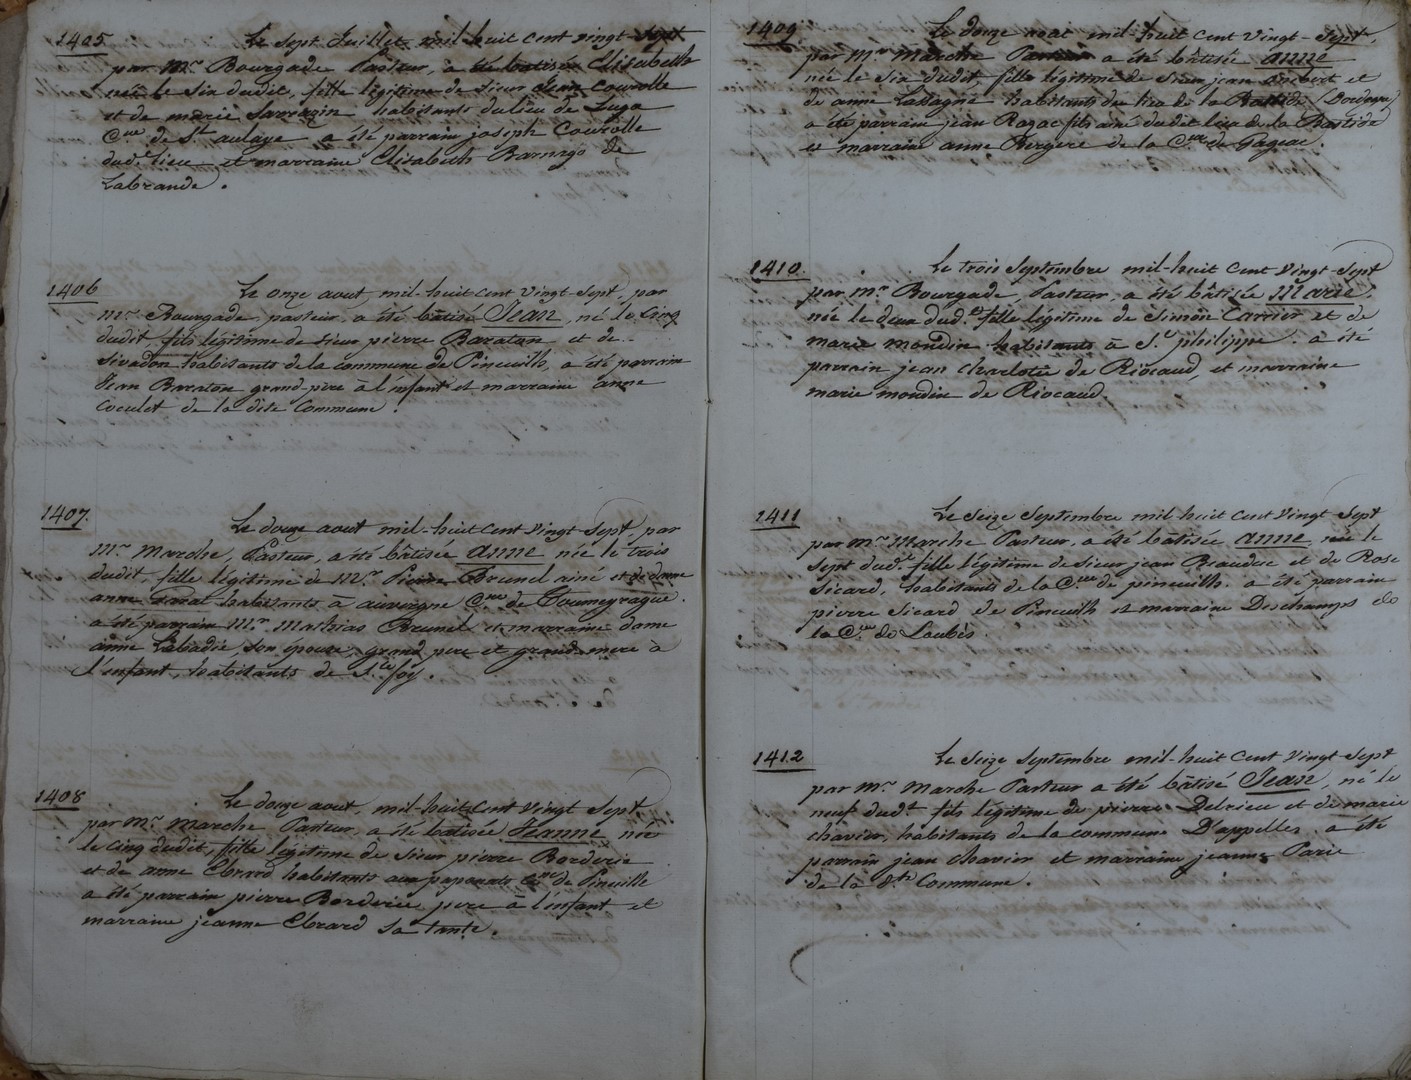 1405. Le sept Juillet mil-huit cent vingt-sept
par Mr. Bourgade Pasteur, a été batisée Elisabeth
née le six dudit, fille légitime de sieur Jean Courolle
et de marie Sarrazin habitants du lieu de Luga
Cne. de St. aulaye a été parrain joseph Courolle
dud. lieu et marraine Elisabeth de
Labrande.
1406 Le onze aout, mil-huit cent vingt-sept, par
mr. Bourgade, pasteur, a été bâtisé Jean, né le cinq
dudit, fils légitime de sieur pierre Baraton et de ..
Sivadon habitants de la commune de Pineuilh, a été parrain
Jean Baraton grand-père à l'enfant et marraine anne
Coculet de la dite Commune.
1407. Le douze aout mil-huit cent vingt-sept, par
Mr. Marche, Pasteur, a été bâtisée anne née le trois
dudit, fille légitime de Mr. Pierre Brunel ainé et de dame
anne habitants à auvergne Cne. de Toumeyragüe.
a été parrain Mr. Mathias Brunel et marraine dame
anne Labadie, son épouse, grand père et grand-mère à
l'enfant, habitants de Ste. foy.
1408 Le douze aout, mil-huit cent vingt sept
par Mr. Marche Pasteur, a été batisée Jeanne née
le cinq dudit, fille légitime de sieur pierre Borderie
et de anne Ebrard habitants aux paponats Cne. de Pineuille
a été parrain pierre Borderie, père à l'enfant et
marraine jeanne Ebrard sa tante.
1409. Le douze aout mil-huit cent vingt-sept,
par Mr. Marche Pasteur a été bâtisée anne
née le six dudit, fille légitime de sieur jean et
de anne Lassagne habitants du lieu de la Bastide (Dordogne)
a été parrain jean Razac fils ainé dudit lieu de la Bastide
et marraine anne Bergere de la Cne. de Gageac.
1410. Le trois Septembre mil-huit cent vingt-sept
par mr. Bourgade, Pasteur, a été bâtisée Marie,
née le deux dud.t fille légitime de Simon Carrier et de
marie mondin habitants à St. philippe. a été
parrain jean charlotte de Riocaud, et marraine
marie mondin de Riocaud.
1411 Le Seize Septembre mil-huit cent vingt sept
par mr. Marche Pasteur, a été bâtisée anne, née le
sept dud.t fille légitime de sieur jean Beaudue et de Rose
Sicard, habitants de la Cne. de pineuilh. a été parrain
pierre Sicard de Pineuilh et marraine Deschamps de
la Cne. de Loubès.
1412 Le Seize Septembre mil-huit cent vingt sept
par mr. Marche Pasteur a été bâtisé Jean, né le
neuf dud.t fils légitime de pierre Delrieu et de marie
chavier, habitants de la commune D'appelles. a été
parrain jean chavier et marraine jeanne Parie
de la d.te Commune.